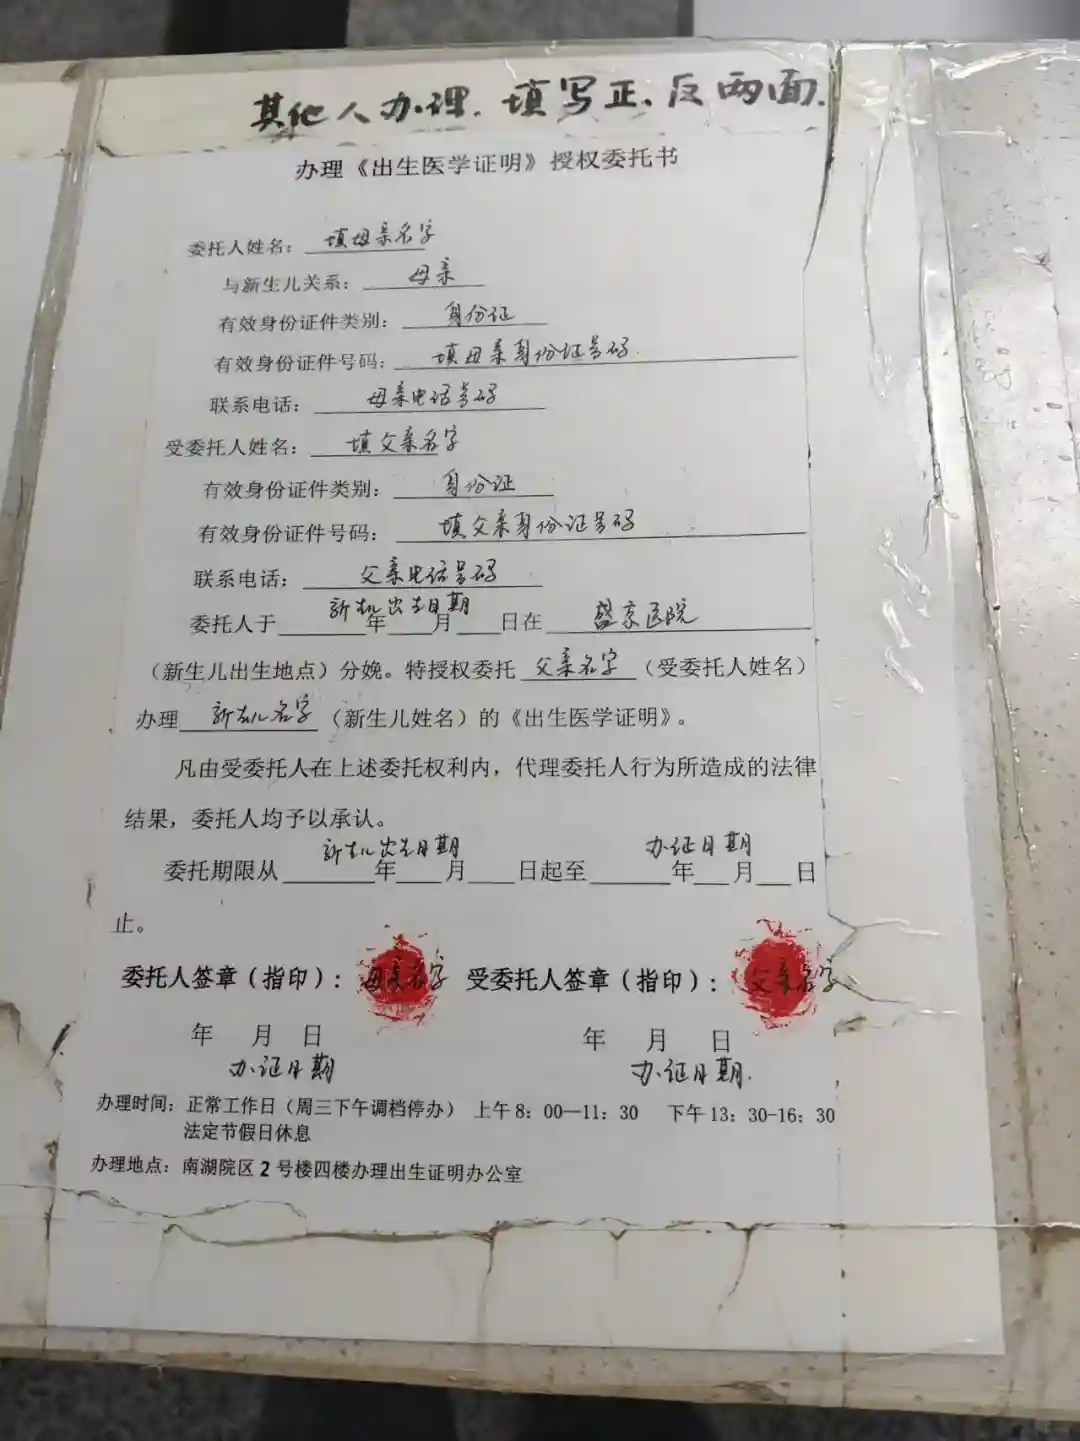 其他人办理.填写正、反两面.
办理《出生医学证明》授权委托书
委托人姓名：填母亲名字
与新生儿关系：母亲
有效身份证件类别：身份证
有效身份证件号码：填母亲身份证号码.
联系电话：母亲电话号码
受委托人姓名：填父亲名字
有效身份证件类别：身份证
有效身份证件号码：填父亲身份证号码
联系电话：父亲电话号码
新生儿出生日期
委托人于____年___月___日在 盛京医院
（新生儿出生地点）分娩。特授权委托 父亲名字 （受委托人姓名）
办理 新生儿名字 （新生儿姓名）的《出生医学证明》。
凡由受委托人在上述委托权利内，代理委托人行为所造成的法律
结果，委托人均予以承认。
新生儿出生日期 办证日期
委托期限从____年___月___日起至____年___月___日
止。
委托人签章（指印）：母亲名字 受委托人签章（指印）：父亲名字
年 月 日 年 月 日
办证日期 办证日期.
办理时间：正常工作日（周三下午调档停办） 上午8：00—11：30 下午13：30-16：30
法定节假日休息
办理地点：南湖院区2号楼四楼办理出生证明办公室